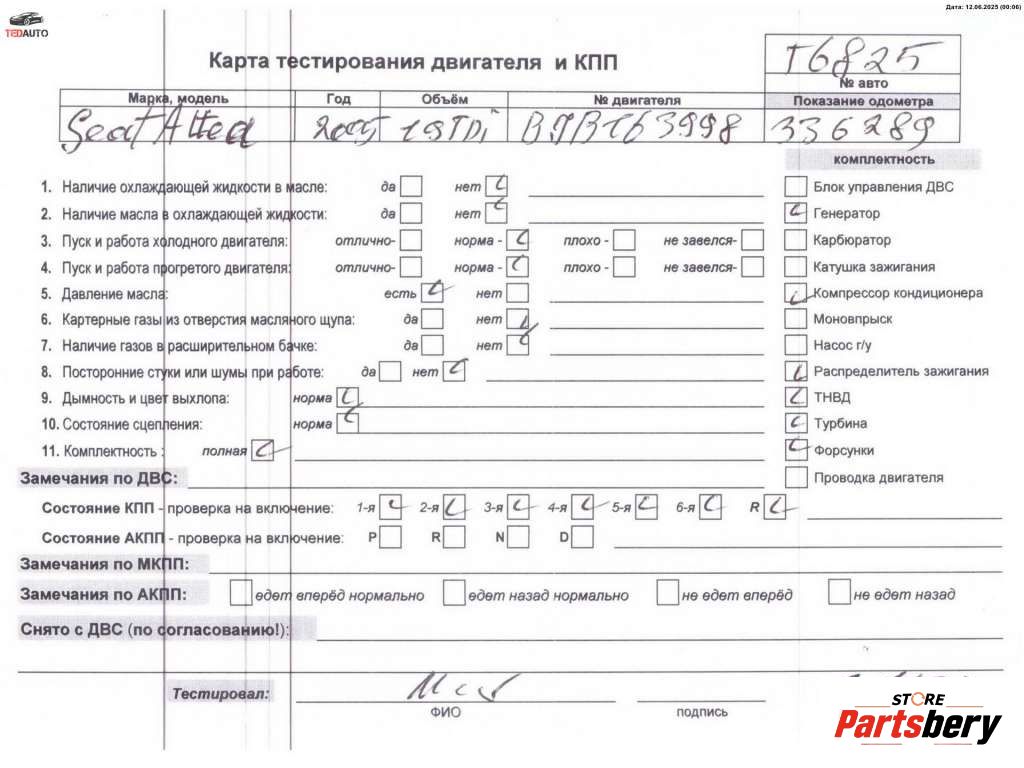 Дата: 12.06.2025 (00:06)
TEDAUTO
Карта тестирования двигателя и КПП
T6825
№ авто
Марка, модель Год Объём № двигателя Показание одометра
Seat Altea 2005 1.9TDi 336289
комплектность
1. Наличие охлаждающей жидкости в масле: да нет
Блок управления ДВС
2. Наличие масла в охлаждающей жидкости: да нет
Генератор
3. Пуск и работа холодного двигателя: отлично- норма - плохо - не завелся-
Карбюратор
4. Пуск и работа прогретого двигателя: отлично- норма - плохо - не завелся-
Катушка зажигания
5. Давление масла: есть нет
Компрессор кондиционера
6. Картерные газы из отверстия масляного щупа: да нет
Моновпрыск
7. Наличие газов в расширительном бачке: да нет
Насос г/у
8. Посторонние стуки или шумы при работе: да нет
Распределитель зажигания
9. Дымность и цвет выхлопа: норма
ТНВД
10. Состояние сцепления: норма
Турбина
11. Комплектность : полная
Форсунки
Замечания по ДВС:
Проводка двигателя
Состояние КПП - проверка на включение: 1-я 2-я 3-я 4-я 5-я 6-я R
Состояние АКПП - проверка на включение: P R N D
Замечания по МКПП:
Замечания по АКПП: едет вперёд нормально едет назад нормально не едет вперёд не едет назад
Снято с ДВС (по согласованию!):
Тестировал:
ФИО подпись
STORE
Partsbery